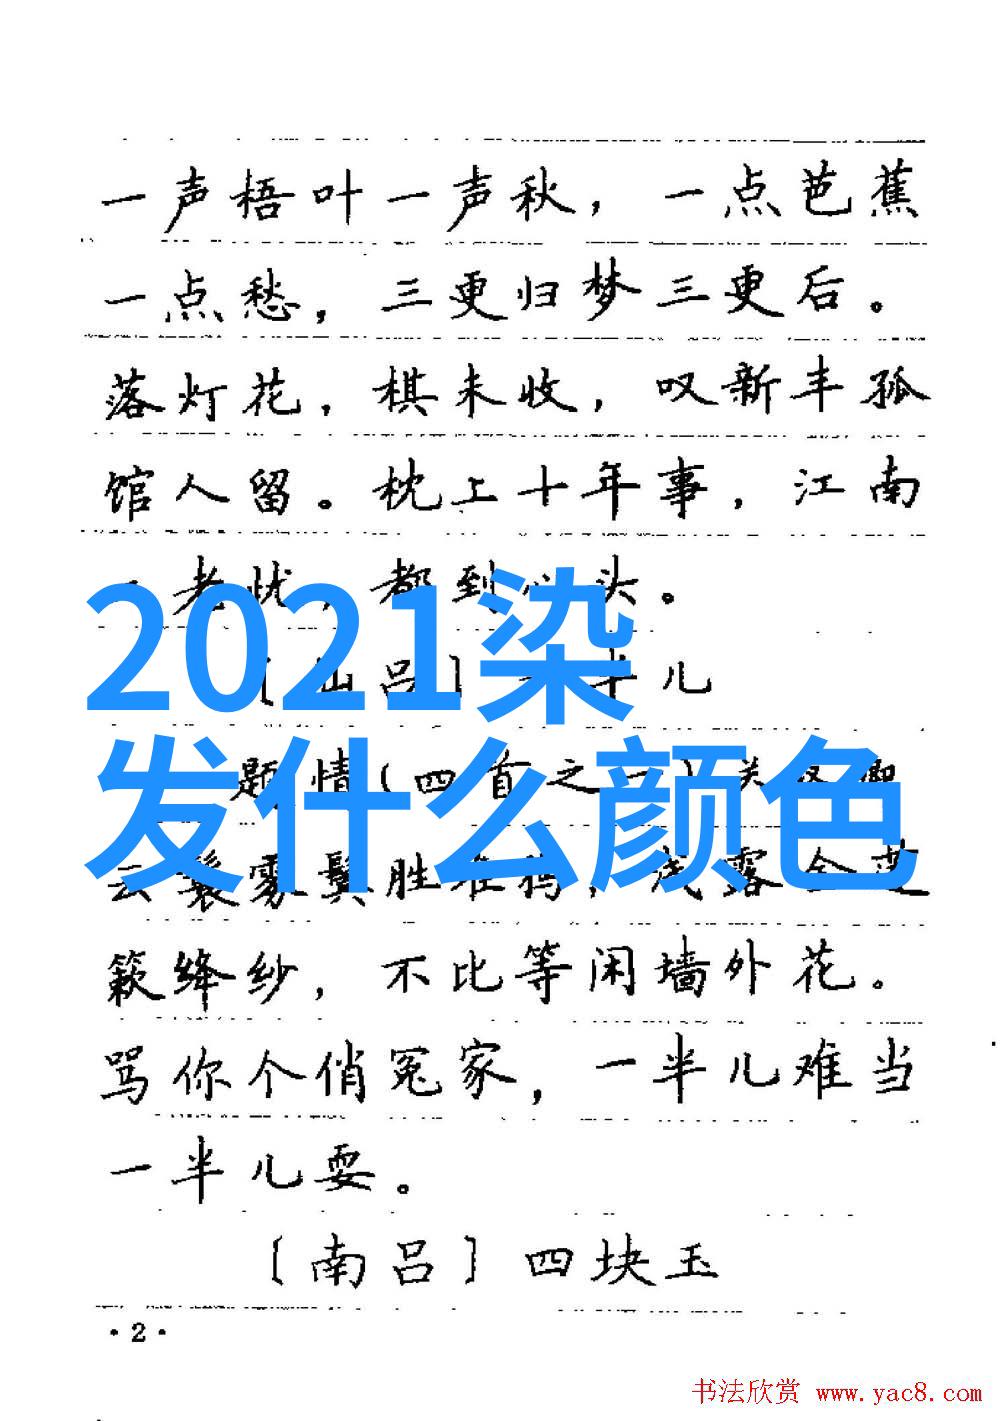 一声梧叶一声秋，一点芭蕉
一点愁，三更归梦三更后。
落灯花，棋未收，叹新丰孤
馆人留。枕上十年事，江南
老忧，都到心头。
2021染
〔仙吕〕一半儿
发什么颜色
题情（四首之一）关
云鬟雾鬓胜堆鸦，浅露金莲
簌绛纱，不比等闲墙外花。
骂你个俏冤家，一半儿难当
一半儿耍。
〔南吕〕四块玉
·2·
书法欣赏 www.yac8.com